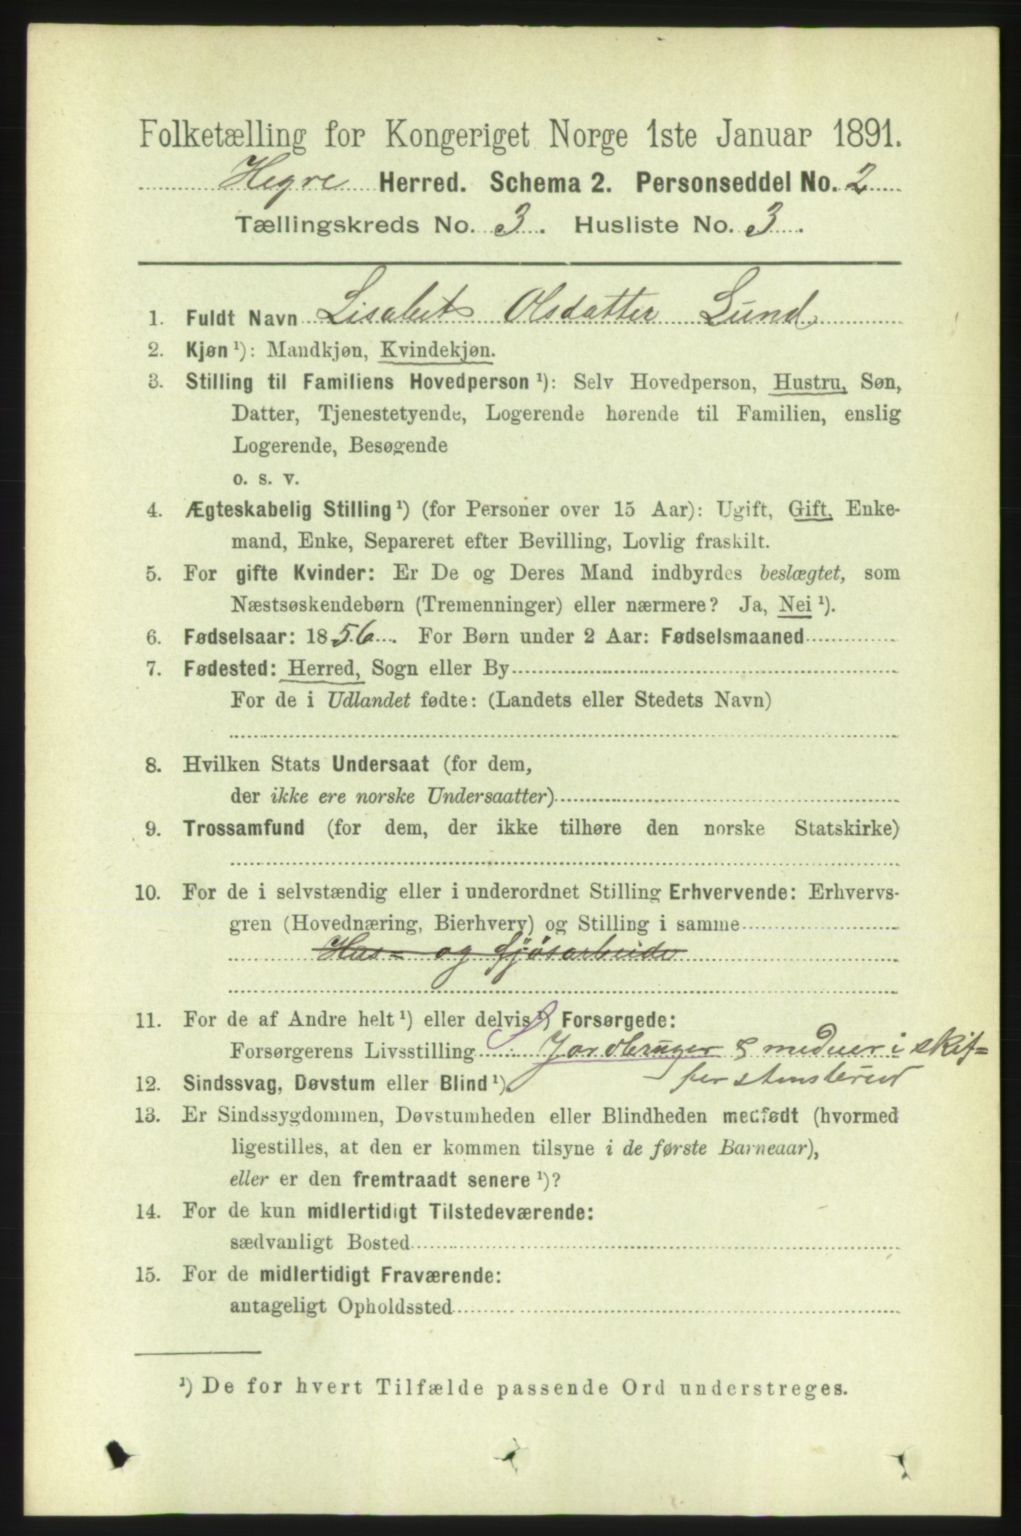 Folketælling for Kongeriget Norge 1ste Januar 1891.
Hegre Herred. Schema 2. Personseddel No. 2
Tællingskreds No. 3. Husliste No. 3.
1. Fuldt Navn Lisabet Olsdatter Lund
2. Kjøn ¹): Mandkjøn, Kvindekjøn.
3. Stilling til Familiens Hovedperson ¹): Selv Hovedperson, Hustru, Søn,
Datter, Tjenestetyende, Logerende hørende til Familien, enslig
Logerende, Besøgende
o. s. v.
4. Ægteskabelig Stilling ¹) (for Personer over 15 Aar): Ugift, Gift, Enke-
mand, Enke, Separeret efter Bevilling, Lovlig fraskilt.
5. For gifte Kvinder: Er De og Deres Mand indbyrdes beslægtet, som
Næstsøskendebørn (Tremenninger) eller nærmere? Ja, Nei ¹).
6. Fødselsaar: 1856. For Børn under 2 Aar: Fødselsmaaned
7. Fødested: Herred, Sogn eller By
For de i Udlandet fødte: (Landets eller Stedets Navn)
8. Hvilken Stats Undersaat (for dem,
der ikke ere norske Undersaatter)
9. Trossamfund (for dem, der ikke tilhøre den norske Statskirke)
10. For de i selvstændig eller i underordnet Stilling Erhvervende: Erhvervs-
gren (Hovednæring, Bierhverv) og Stilling i samme
Hus- og fjøsarbeide
11. For de af Andre helt ¹) eller delvis ¹) Forsørgede:
Forsørgerens Livsstilling Jordbruger & medeier i skif=
fer stensbrud
12. Sindssvag, Døvstum eller Blind ¹).
13. Er Sindssygdommen, Døvstumheden eller Blindheden medfødt (hvormed
ligestilles, at den er kommen tilsyne i de første Barneaar),
eller er den fremtraadt senere ¹)?
14. For de kun midlertidigt Tilstedeværende:
sædvanligt Bosted
15. For de midlertidigt Fraværende:
antageligt Opholdssted
¹) De for hvert Tilfælde passende Ord understreges.